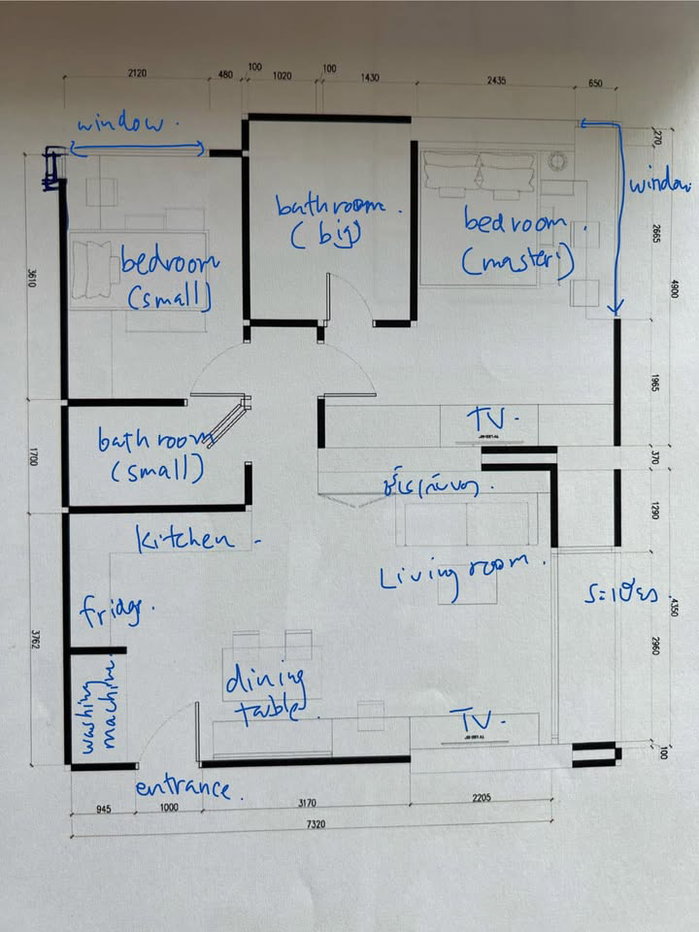 100
100
2120
480
1020
1430
2435
650
window.
270
window
bathroom.
(big)
bedroom.
(master)
2665
4900
bedroom
(small)
3610
1965
TV.
bathroom
(small)
1700
370
1290
Kitchen
Living room.
ระเบียง
4350
fridge.
3762
2960
dining
table.
washing
machine.
TV.
100
entrance.
945
1000
3170
2205
7320